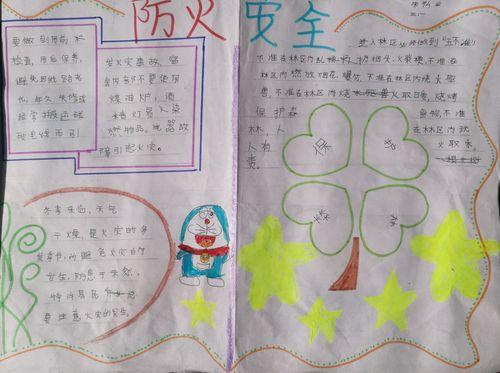 防火安全
要做到用前
检查,用后保养,
避免因线路老
化、年久失修或
经常搬运磕
发火灾事故。宿
舍内部不要使用
煤油炉,酒
精灯易人染
燃物品。
障引起火灾。
进入林区必须做到“五不准”
不准在林区内乱扔烟头,火柴梗,不准在
林区内燃放烟花、爆竹,不准在林区内烧火驱
兽,不准在林区内烧火取暖,烧烤
食物,不准
在林区内玩
火取乐。
保护森
林,人
人有
责。
保护
森林
冬季来临,天气
干燥,是火灾的多
发季节,为避免火灾的
发生,防患于未然,
要注意火灾的发生。